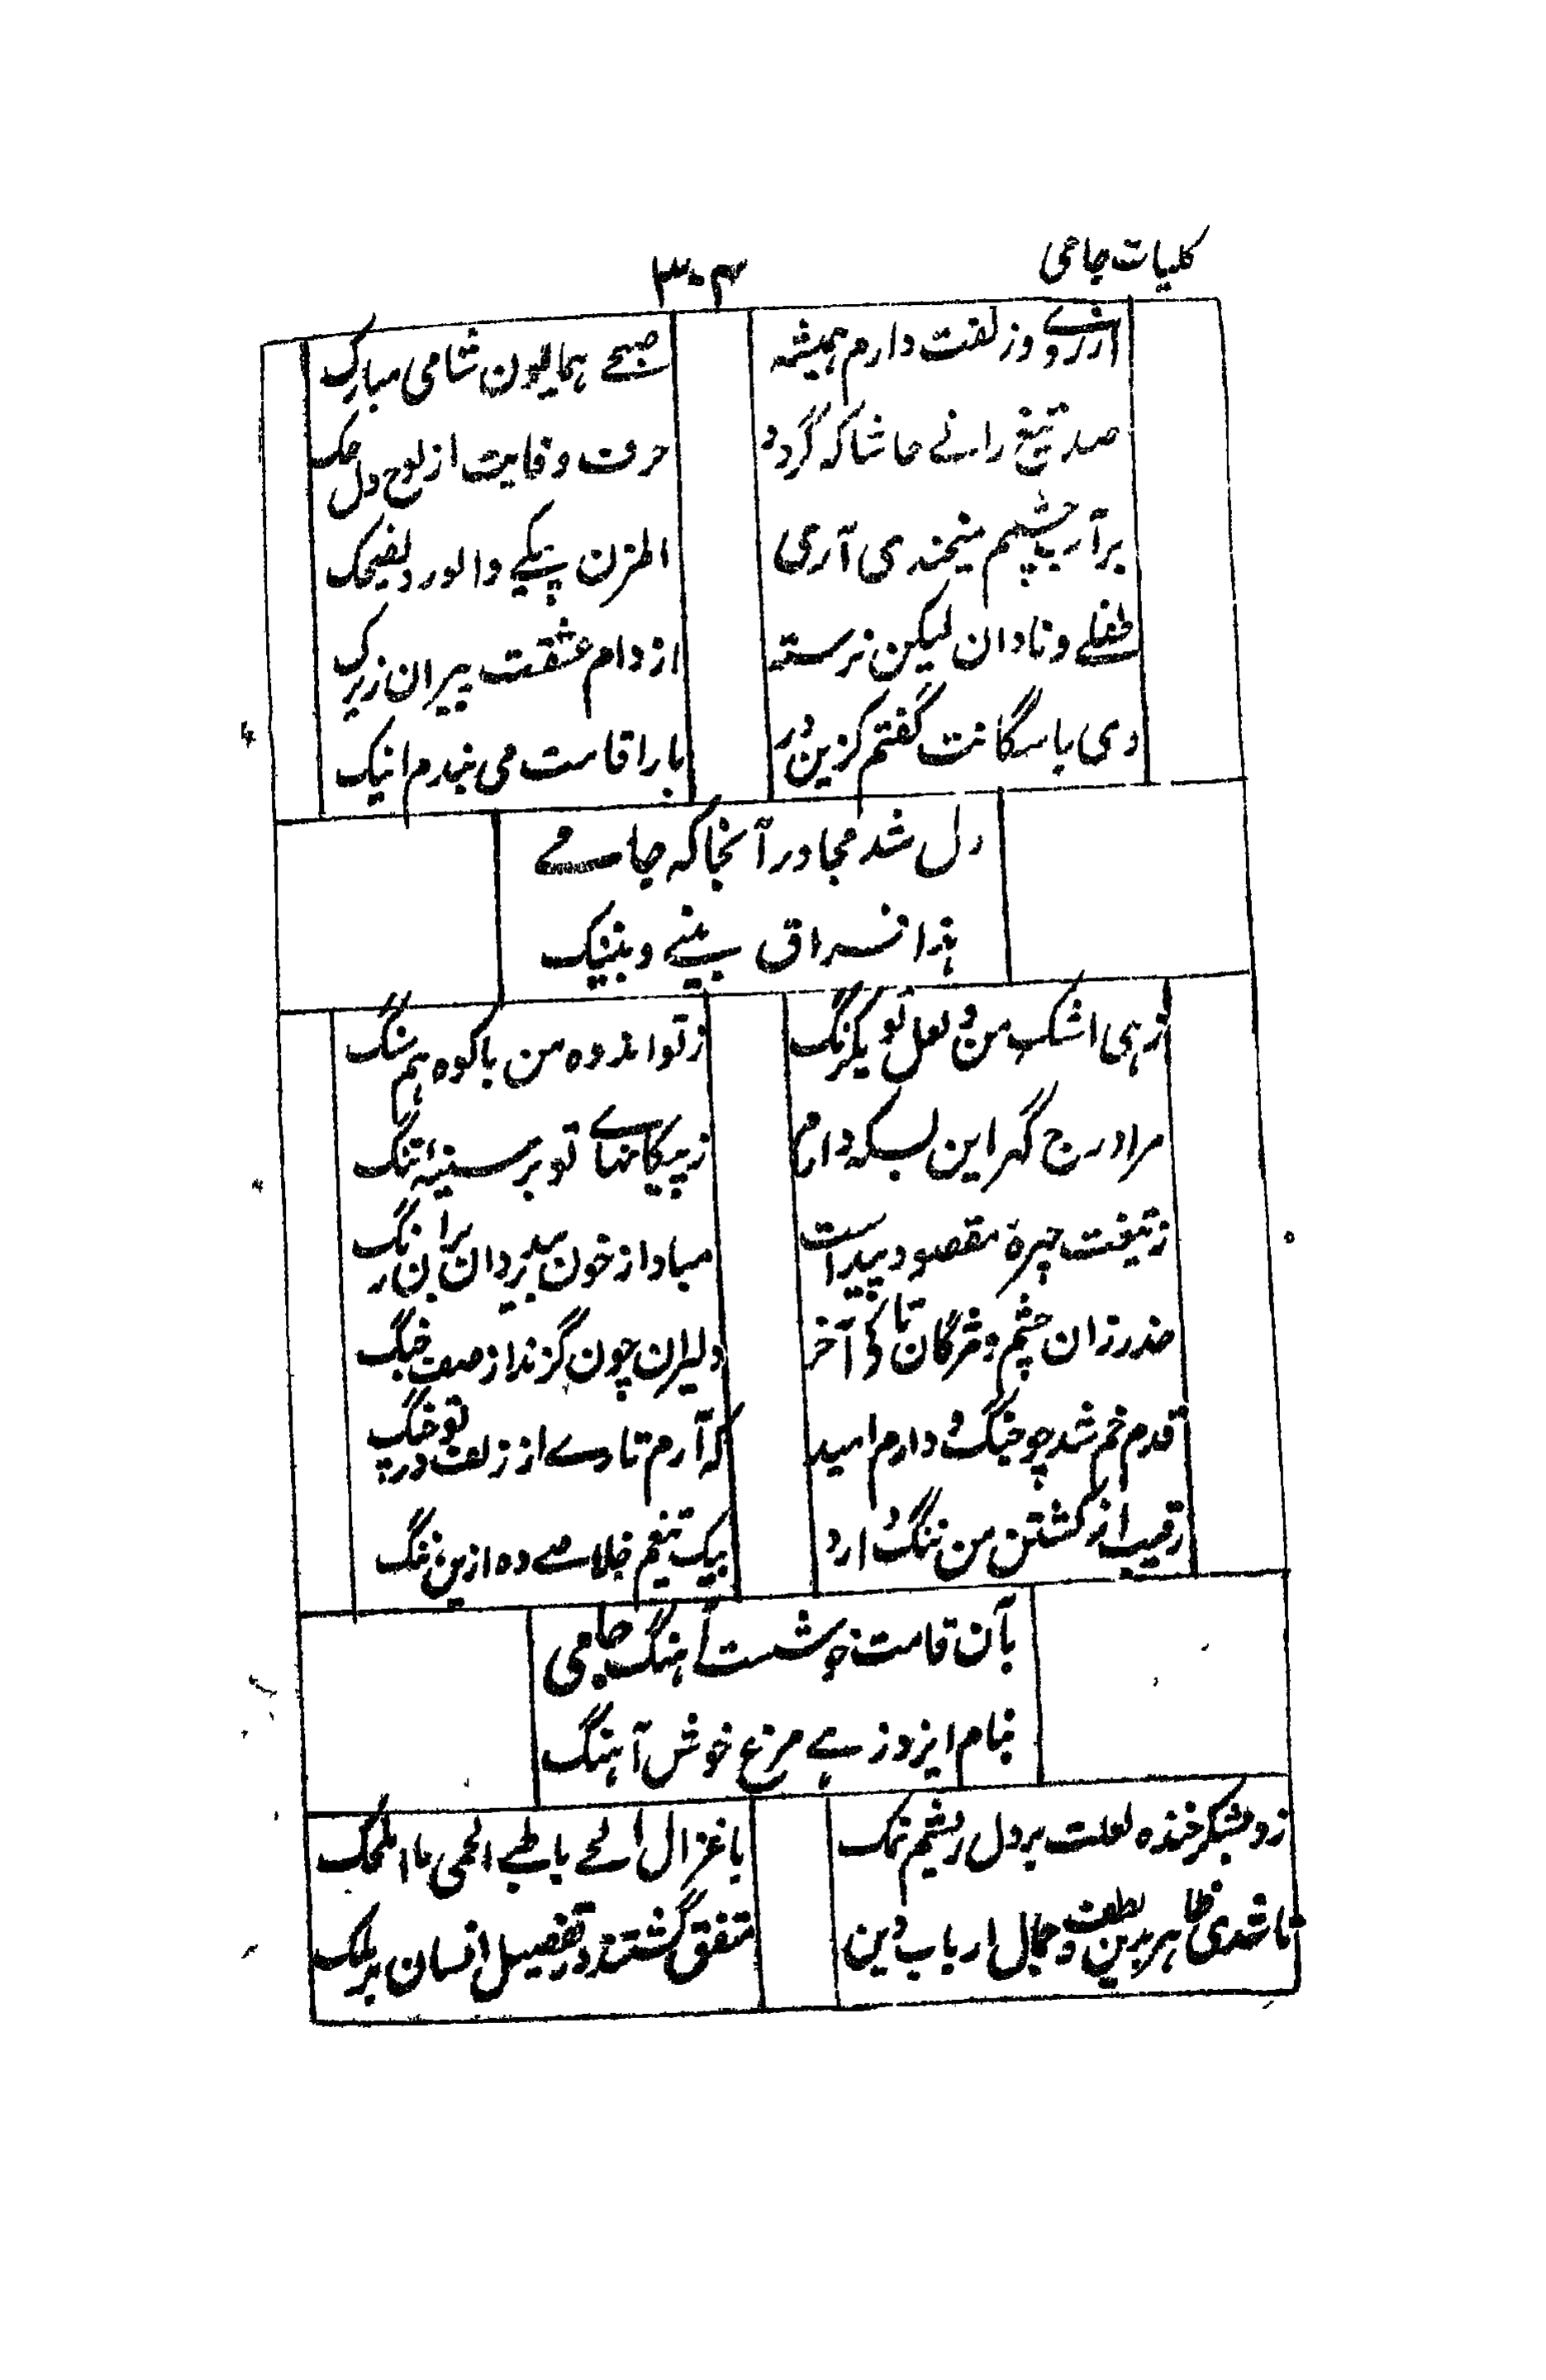 کلیات جامی
۳۰۴
از روے وز لفت دارم ہمیشہ
صبحے ہمایون شامی مبارک
صد تیغ رانے حاشا کہ گردد
حرف وفایت از لوح دل حک
بر آب چشمم میخندی آری
المزن یبکے والورد یضحک
طفلے و نادان لیکن نرستہ
از دام عشقت پیران زیرک
دی با سگانت گفتم کزین در
بار اقامت می بندم اینک
دل شد مجاور آنجا کہ جامے
ہذا فراق بینے و بینک
زہی اشک من و لعل تو یکرنگ
ز تو اندوہ من با کوہ ہم سنگ
مرا درج گہر این بسکہ دارم
ز پیکانہاے تو بر سینہ تنگ
ز تیغت چہرہ مقصود پیداست
مبادا از خون بران رنگ
حذر زان چشم و مژگان تا کی آخر
دلیران چون گزند از صف جنگ
قدم خم شد چو چنگ و دارم امید
کہ آرم تارے از زلف تو در چنگ
رقیب از کشتن من ننگ دارد
بیک تیغم خلاصے دہ ازین ننگ
بآن قامت خوشست آہنگ جامی
بنام ایزد زہے مرغ خوش آہنگ
زد بشکر خندہ لعلت بر دل ریشم نمک
با غزال الحے یا ظبے الحمی ما املحک
تا شدی ظاہر بدین لطف و جمال ارباب دین
متفق گشتند در تفضیل انسان بر ملک